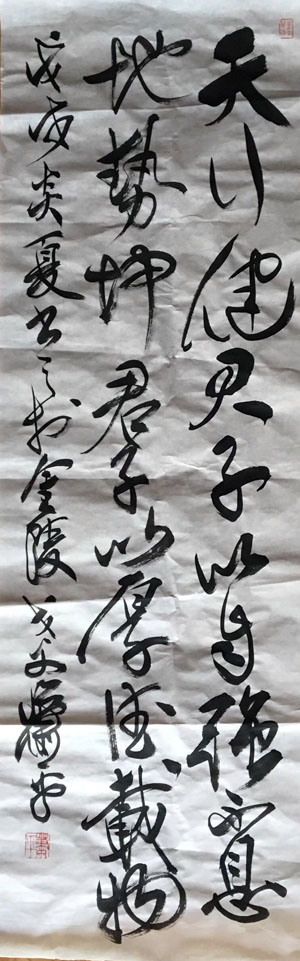 天行健君子以自强不息
地势坤君子以厚德载物
戊戌炎夏书之於金陵